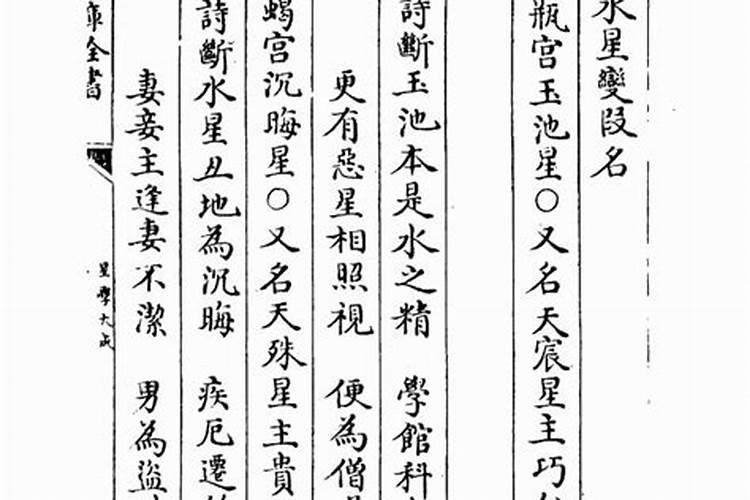 水星變段名
瓶宮玉池星○又名天宸星主巧
詩斷玉池本是水之精 學館科
更有惡星相照視 便為僧
蝎宮沉晦星○又名天殊星主貴
詩斷水星丑地為沉晦 疾厄遷
妻妾主逢妻不潔 男為盜
庫全書
星學大成